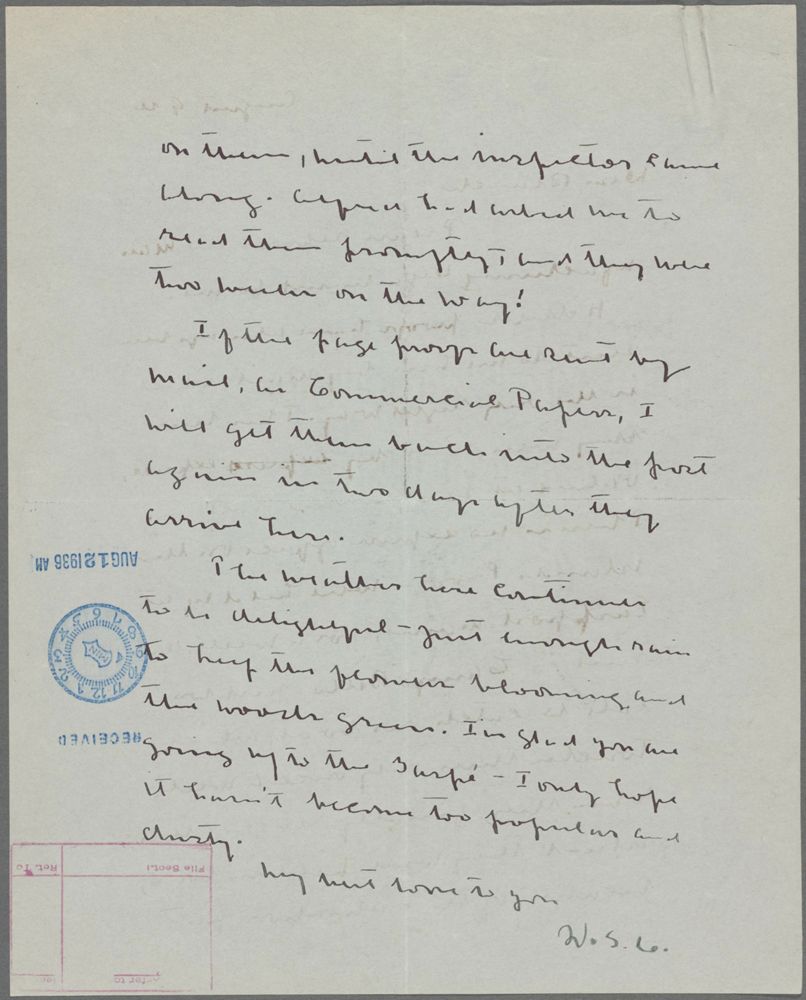 on them, until the inspector came
along. Alfred had asked me to
read them promptly, and they were
two weeks on the way!
If the page proofs are sent by
mail, as Commercial Papers, I
will get them back into the post
again in two days after they
arrive here.
The weather here continues
to be delightful – just enough rain
to keep the flowers blooming, and
the woods green. I'm glad you are
going up to the – I only hope
it hasn't become too popular and
dusty.
My best love to you
W. S. C.
AUG 12 1936 AM
RECEIVED
File Sect.
Ret. To
Refer to